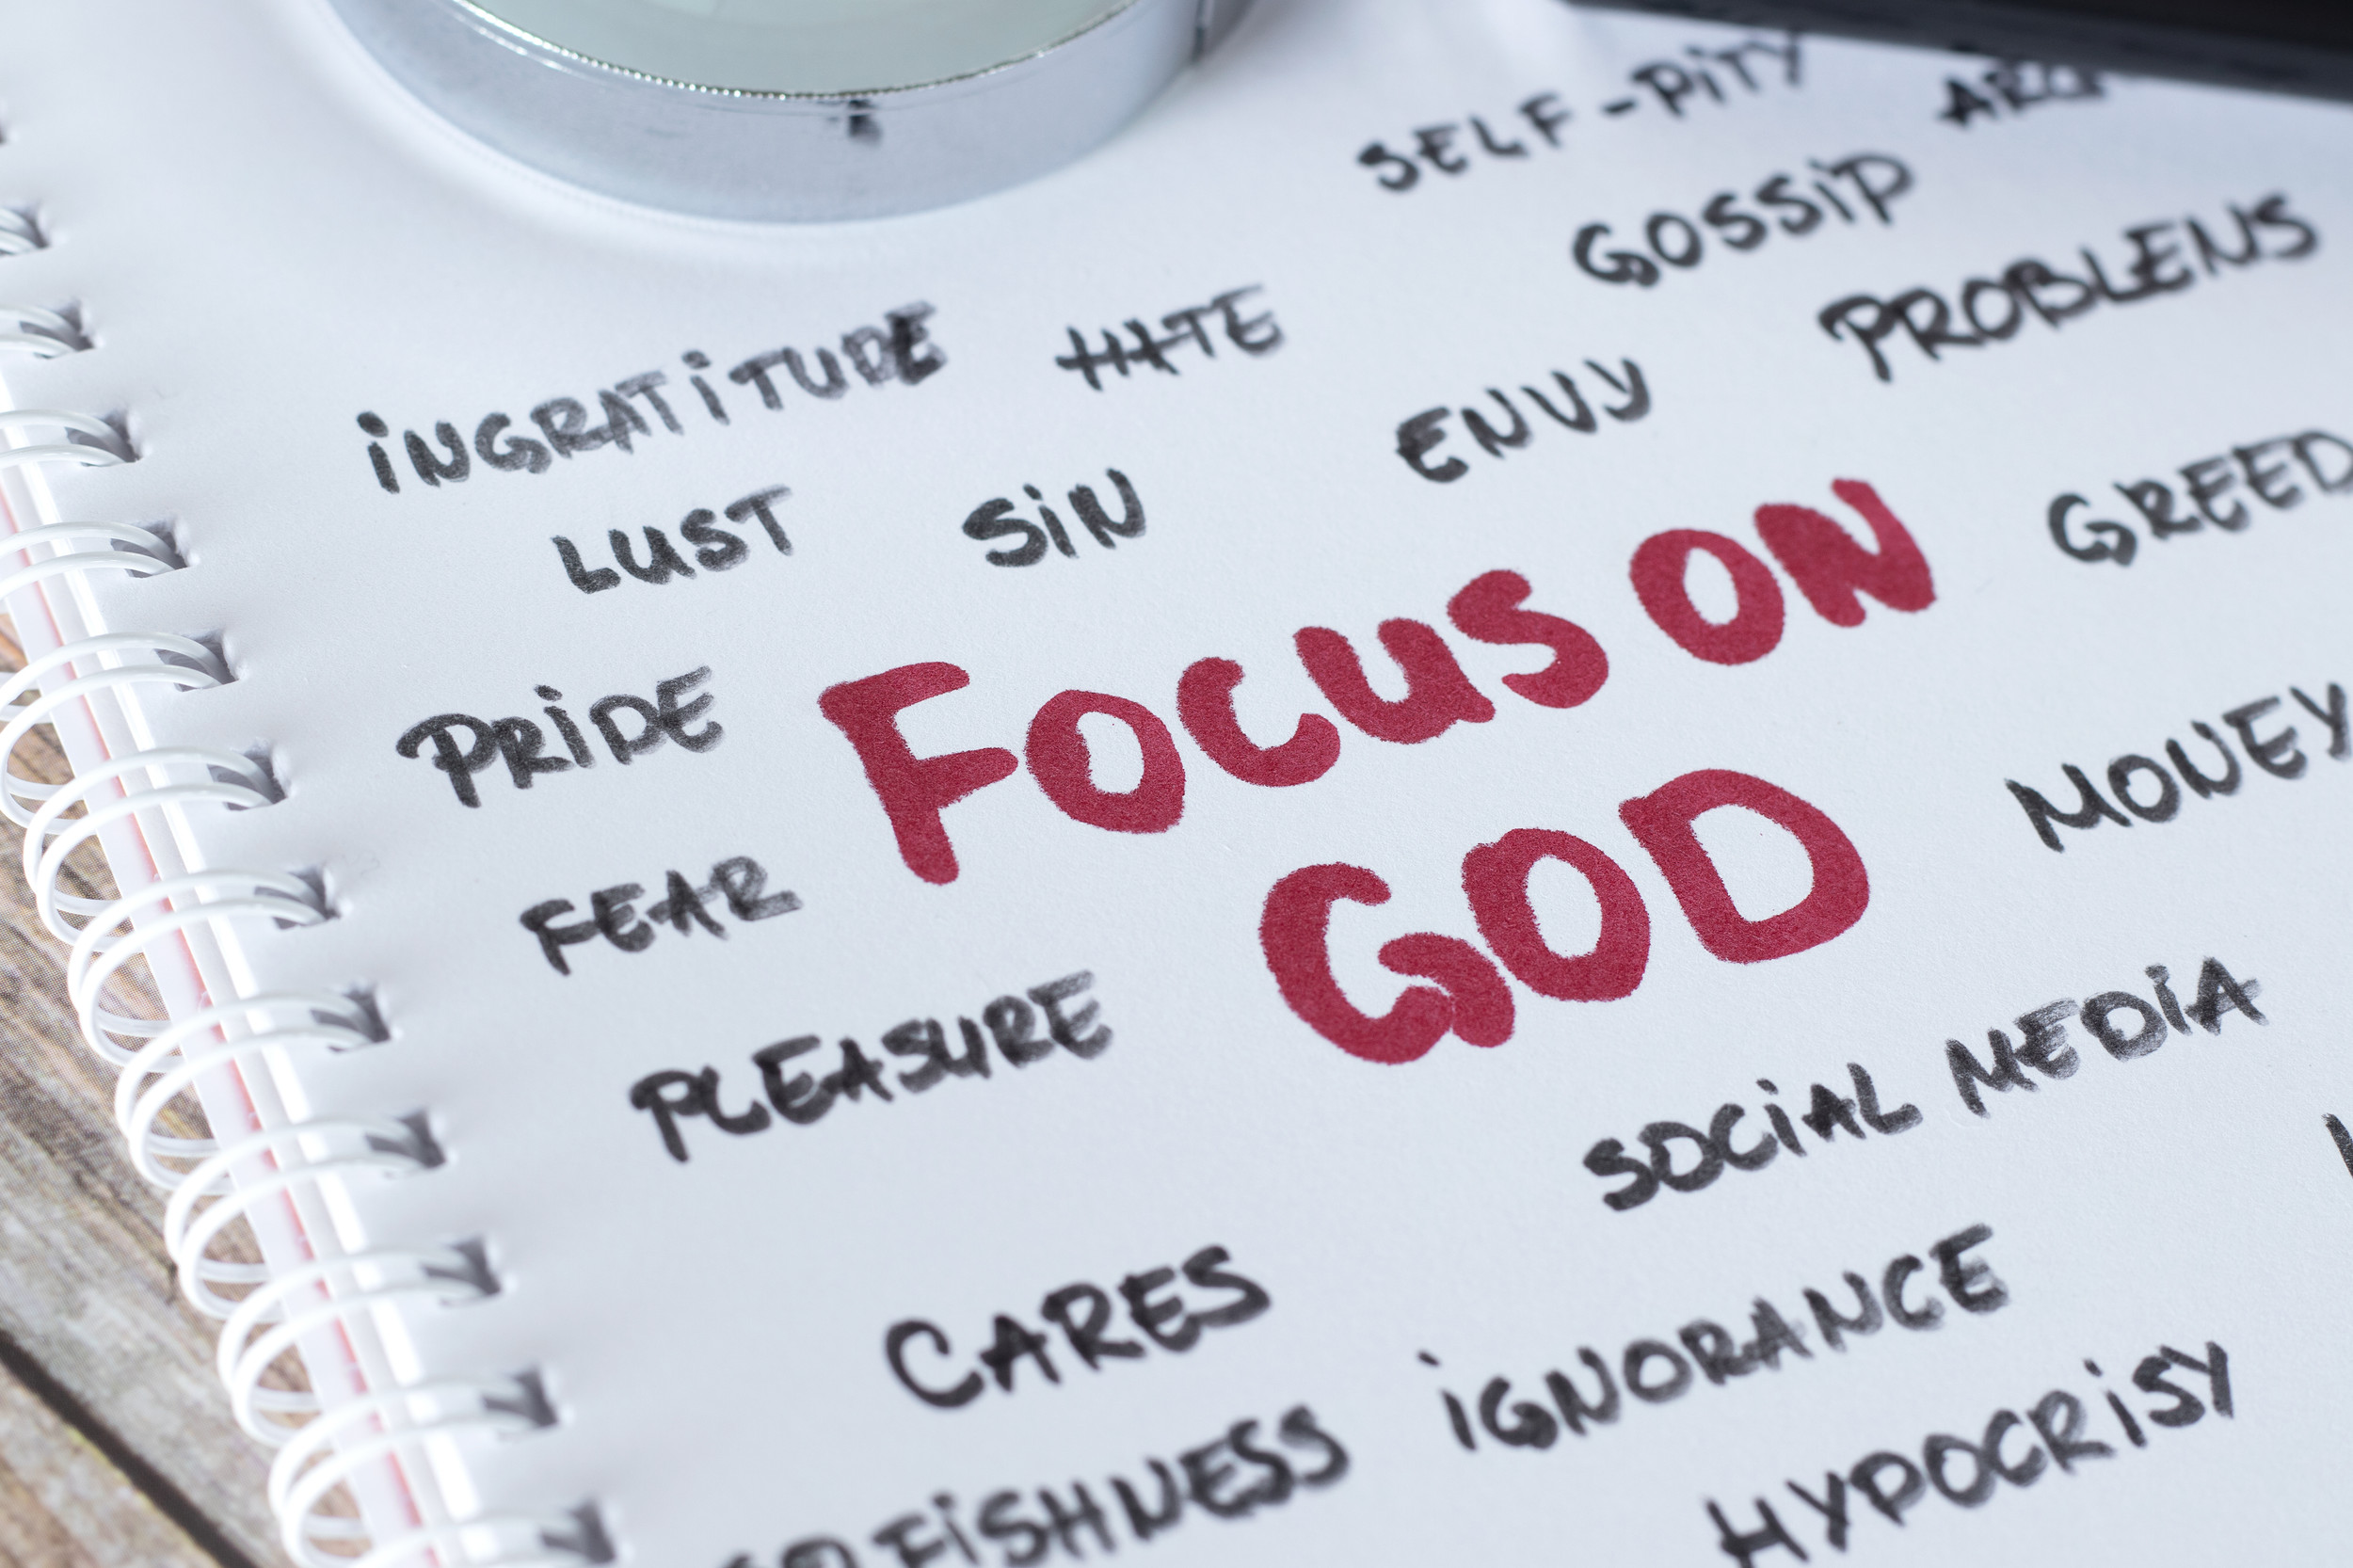 SELF-PITY
GOSSIP
PROBLENS
INGRATITUDE HATE
ENVY
LUST SIN
GREED
PRIDE FOCUS ON
GOD
MONEY
FEAR
PLEASURE
SOCIAL MEDIA
CARES
IGNORANCE
HYPOCRISY